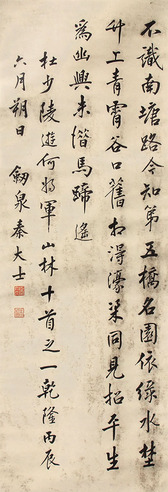 不識南塘路今知第五橋名園依綠水埜
竹上青霄谷口舊相得濠梁同見招平生
爲幽興未惜馬蹄遙
杜少陵遊何將軍山林十首之一乾隆丙辰
六月朔日 劒泉秦大士